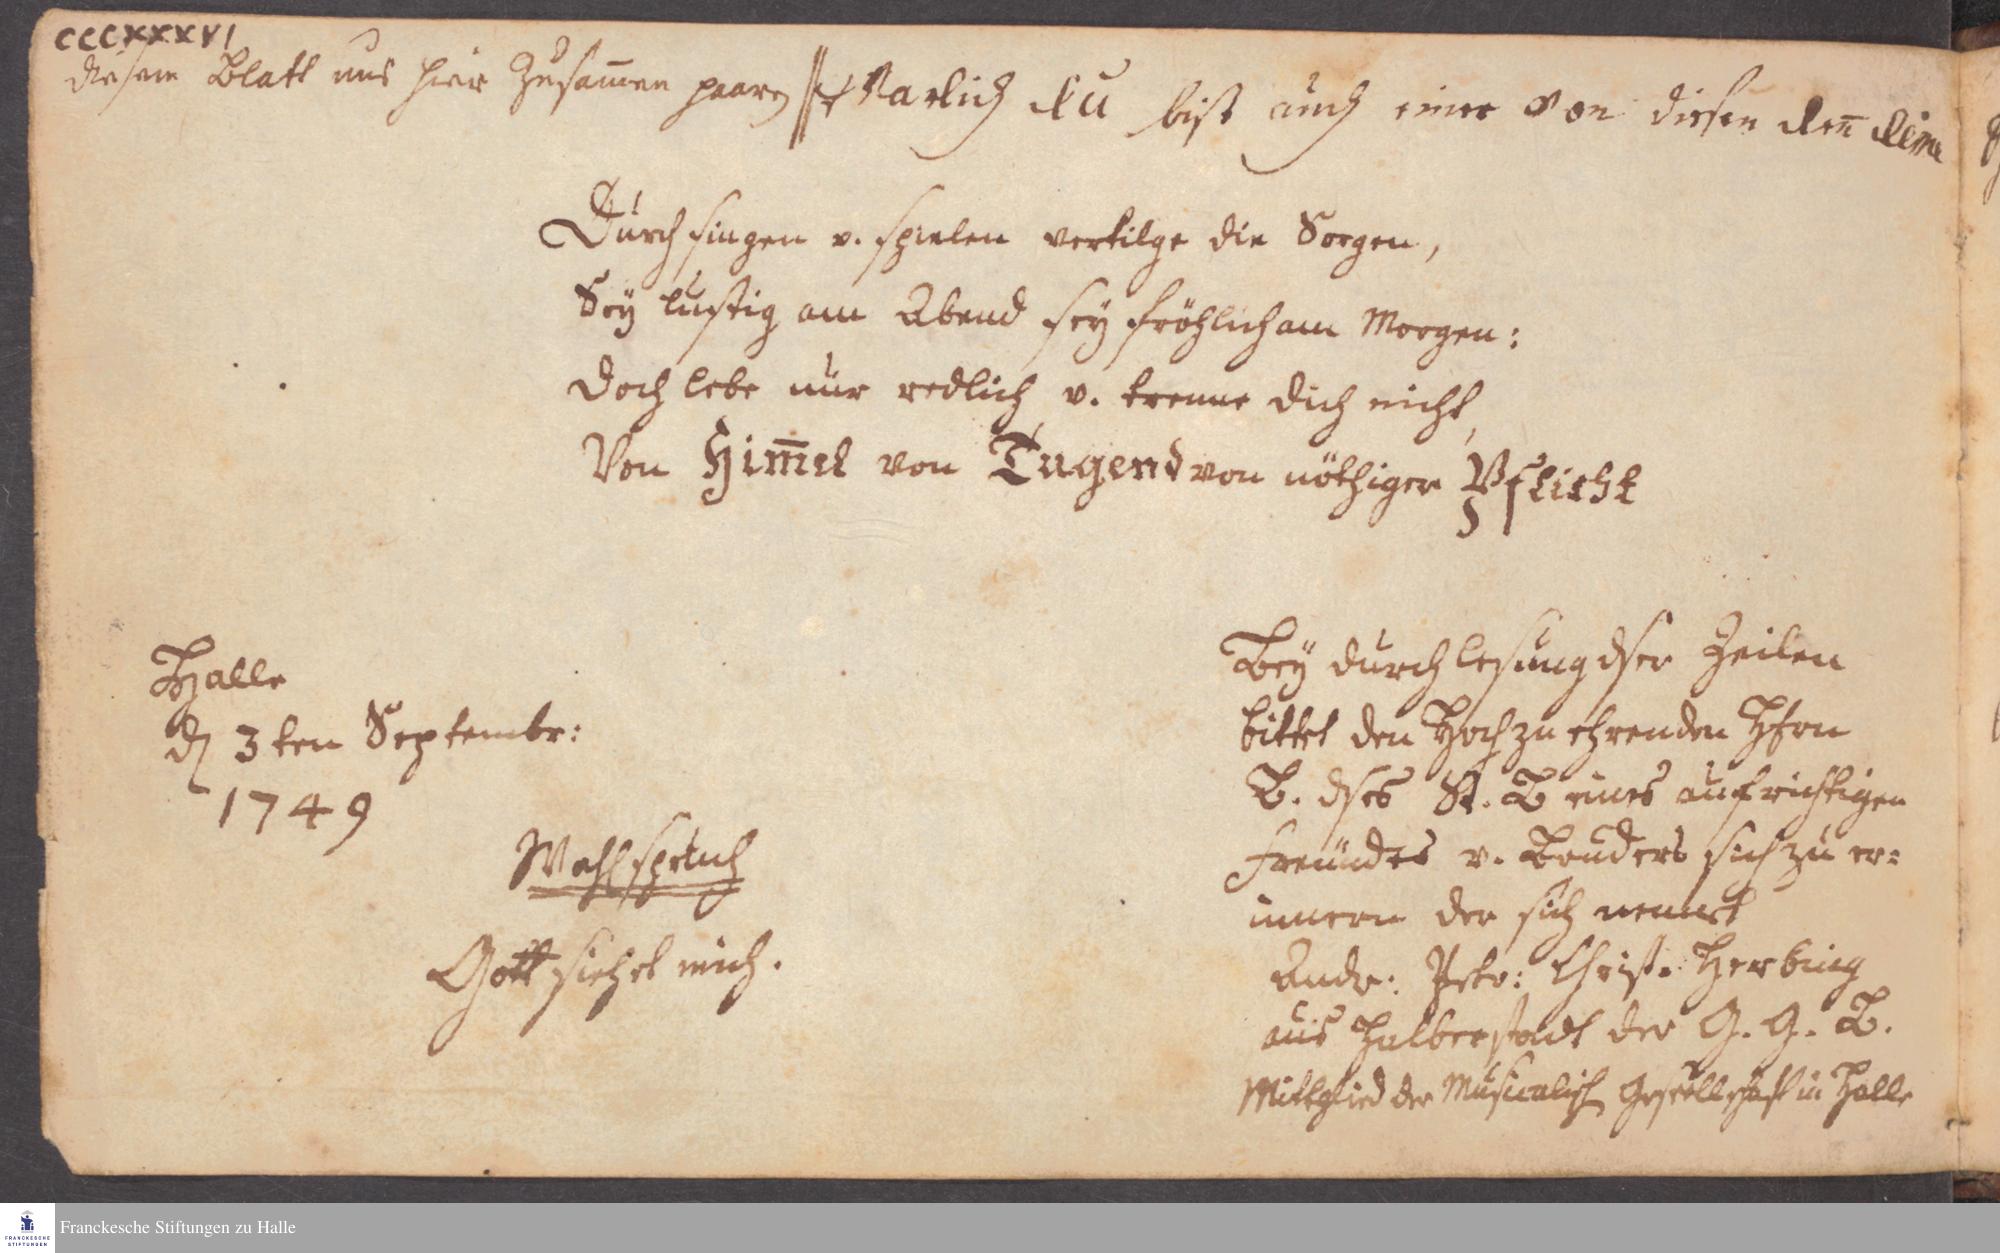 CCCXXXVI
diesem Blatt uns hier Zusam̅en paare Warlich du bist auch einer von diesen den̅ deine
Durch singen v. spielen vertilge die Sorgen,
Sey lustig am Abend sey fröhlich am Morgen:
Doch lebe nur redlich v. trenne dich nicht,
Von Him̅el von Tugend von nöthiger Pflicht
Halle
d 3ten Septembr:
1749
Wahlspruch
Gott siehet mich.
Bey durchlesung dser Zeilen
bittet den Hochzuehrenden Hfrn
B. dses St. B eines aufrichtigen
Freundes v. Bruders sich zu er:
innern der sich nennet
Andr. Petr: Christ. Herbing
aus Halberstadt der G. G. B.
Mittglied der Musicalisch Gesellschaft in Halle
Franckesche Stiftungen zu Halle
FRANCKESCHE
STIFTUNGEN